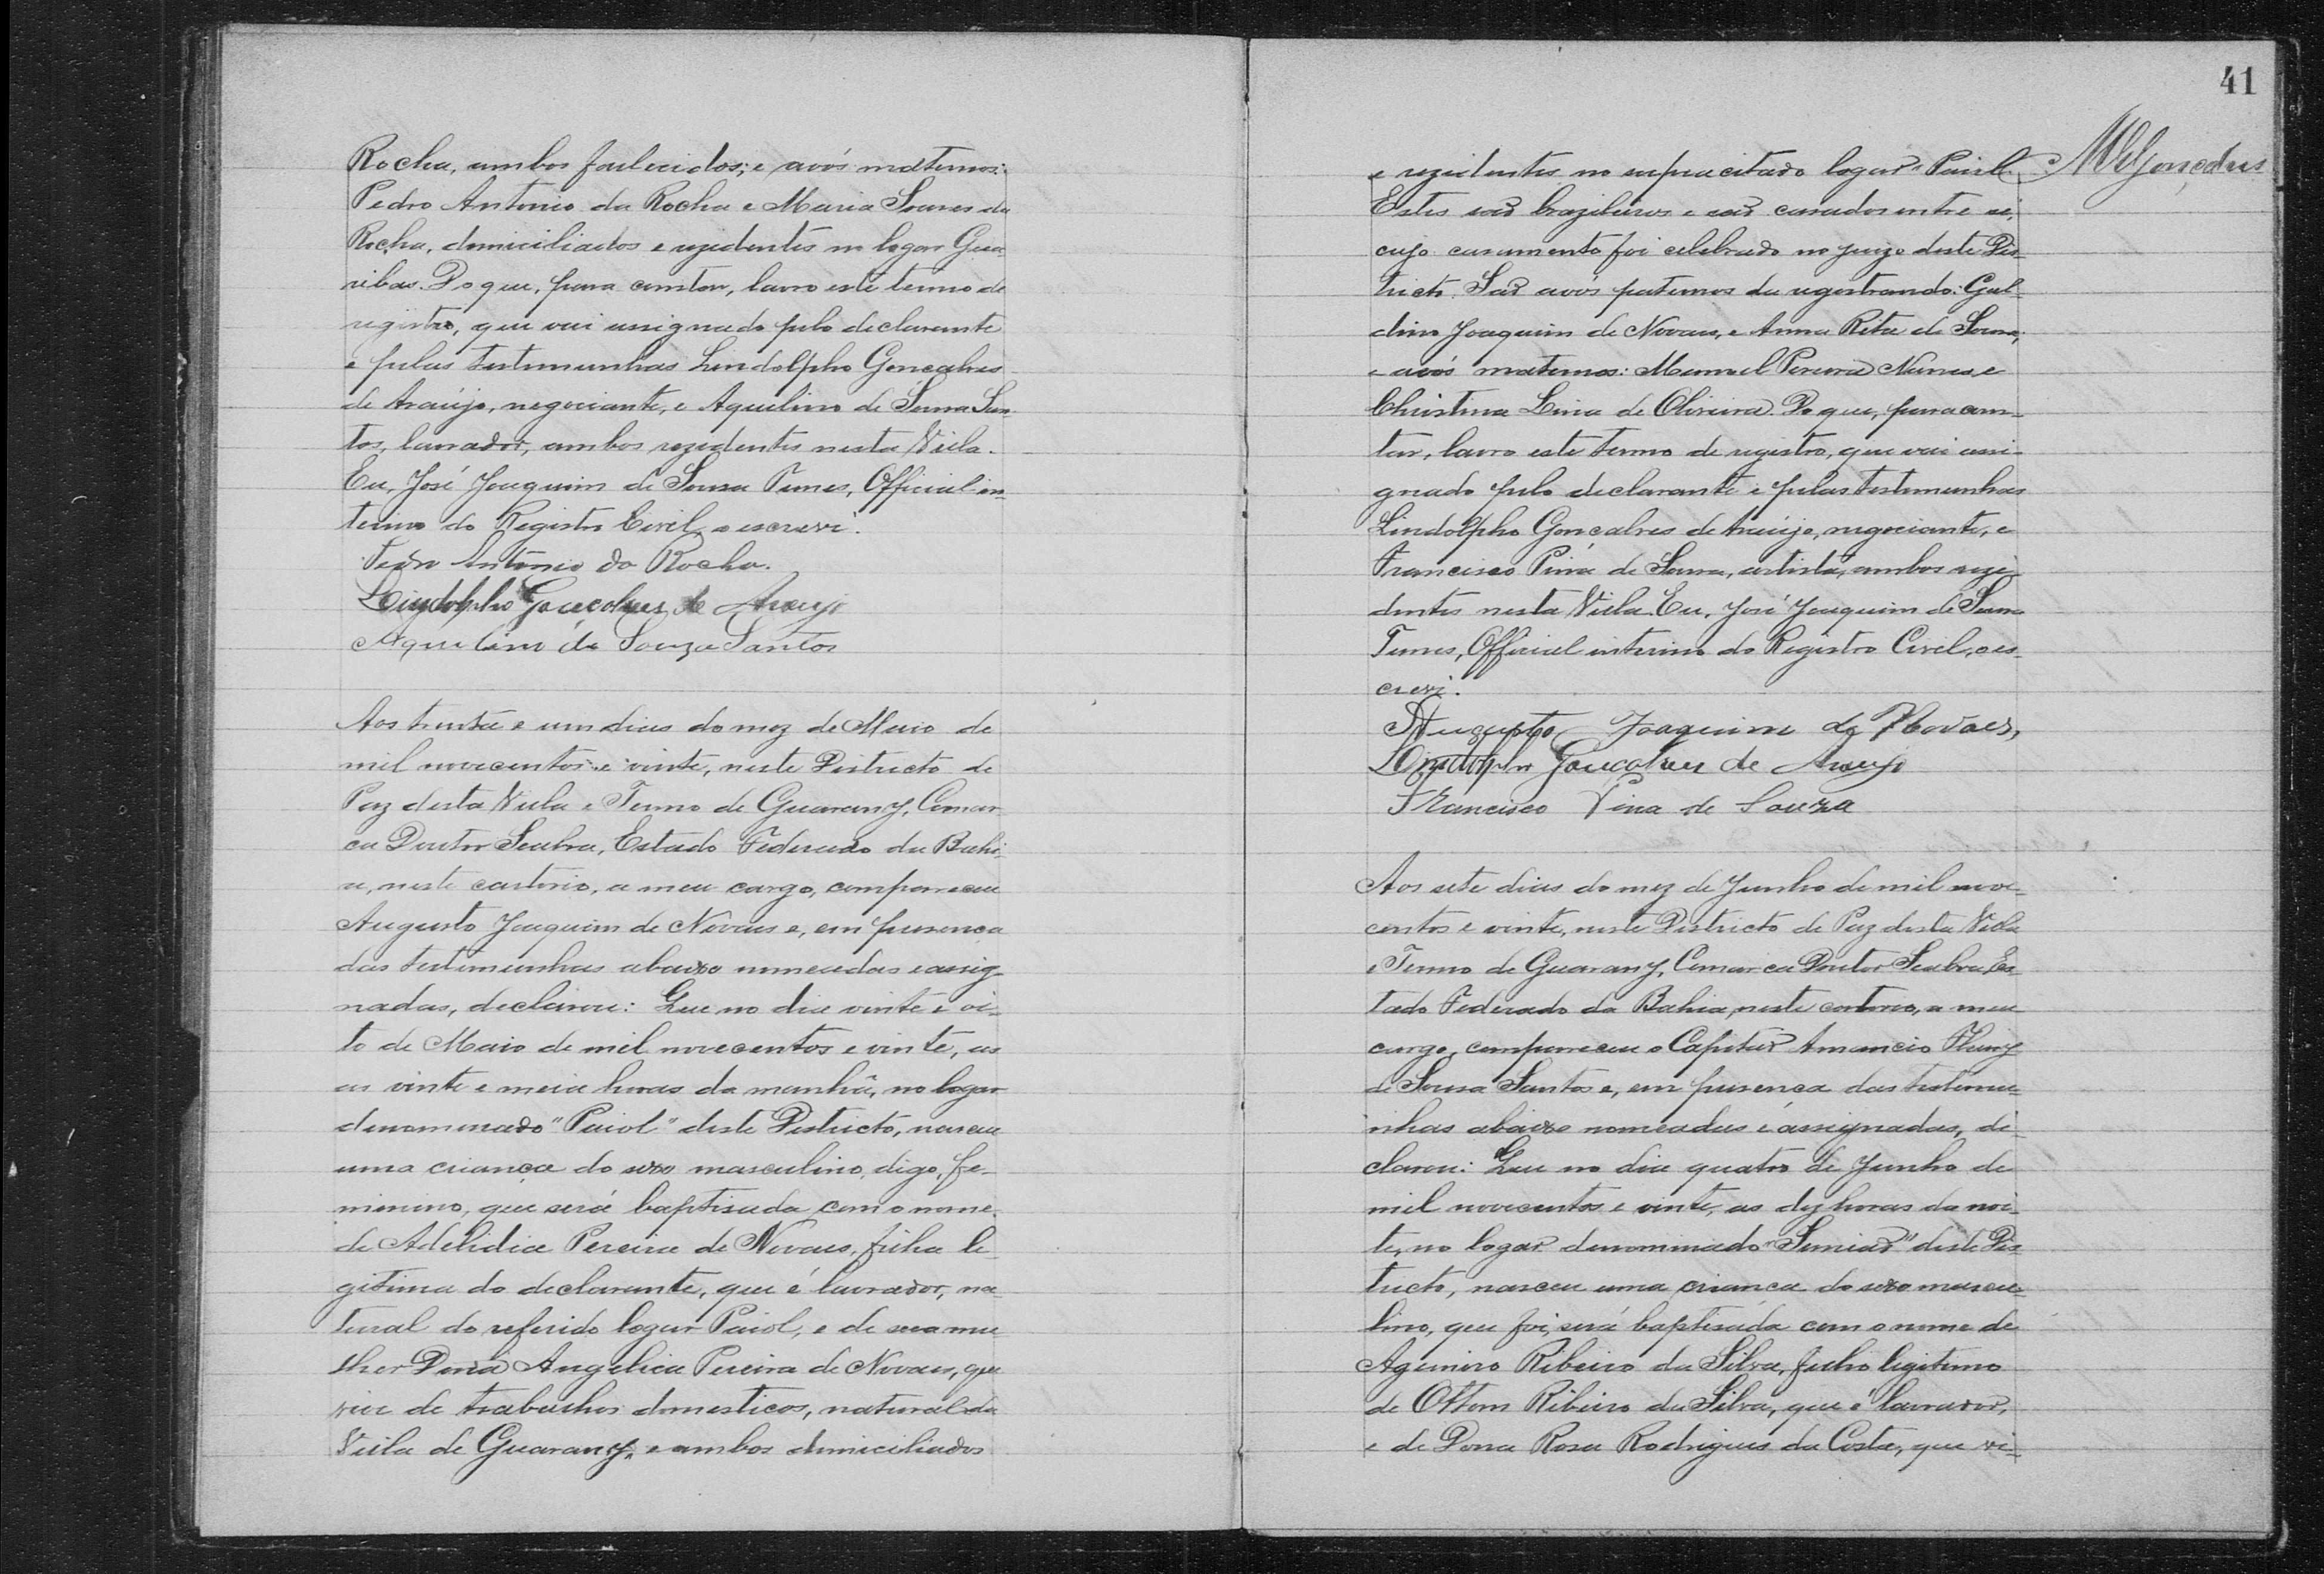 Rocha, ambos fallecidos; e avós maternos:
Pedro Antonio da Rocha e Maria Soares da
Rocha, domiciliados e rezidentes no logar Gua-
ribas. Do que, para constar, lavro este termo de
registro, que vai assignado pelo declarante
e pelas testemunhas Lindolpho Gonçalves
de Araújo, negociante, e Aquilino de Sousa San-
tos, lavrador, ambos rezidentes nesta Villa.
Eu, José Joaquim de Sousa Tunes, Official in-
terino do Registro Civil, o escrevi.
Pedro Antonio da Rocha.
Lindolpho Gonçalves de Araujo
Aquilino de Souza Santos
Aos trinta e um dias do mez de Maio de
mil novecentos e vinte, neste Districto de
Paz desta Villa e Termo de Guarany, Comar-
ca Doutor Seabra, Estado Federado da Bahi-
a, neste cartorio, a meu cargo, compareceu
Augusto Joaquim de Novaes e, em presença
das testemunhas abaixo nomeadas e assig-
nadas, declarou: Que no dia vinte e oi-
to de Maio de mil novecentos e vinte, as
as vinte e meia horas da manhã, no logar
denominado "Paiol" deste Districto, nasceu
uma criança do sexo masculino, digo, fe-
minino, que será baptisada com o nome
de Adelidia Pereira de Novaes, filha le-
gitima do declarante, que é lavrador, na-
tural do referido logar Paiol, e de sua mu-
lher Dona Angelica Pereira de Novaes, que
vive de trabalhos domesticos, natural da
Villa de Guarany, e ambos domiciliados
41
e rezidentes no supracitado logar "Paiol".
MGonçalves
Estes são brazileiros e são casados entre si,
cujo casamento foi celebrado no juizo deste Dis-
tricto. São avós paternos da registrando: Gal-
dino Joaquim de Novaes, e Anna Rita de Sousa;
e avós maternos: Manuel Pereira Nunes e
Christina Lina de Oliveira. Do que, para cons-
tar, lavro este termo de registro, que vai assi-
gnado pelo declarante e pelas testemunhas
Lindolpho Gonçalves de Araújo, negociante, e
Francisco Pina de Sousa, artista, ambos rezi-
dentes nesta Villa. Eu, José Joaquim de Sousa
Tunes, Official interino do Registro Civil, o es-
crevi.
Augusto Joaquim de Novaes,
Lindolpho Gonçalves de Araujo
Francisco Pina de Souza
Aos sete dias do mez de Junho de mil nove-
centos e vinte, neste Districto de Paz desta Villa
e Termo de Guarany, Comarca Doutor Seabra, Es-
tado Federado da Bahia, neste cartorio, a meu
cargo, compareceu o Capitão Amancio
de Sousa Santos e, em presença das testemu-
nhas abaixo nomeadas e assignadas, de-
clarou: Que no dia quatro de Junho de
mil novecentos e vinte, as dez horas da noi-
te, no logar denominado deste Dis-
tricto, nasceu uma criança do sexo mascu-
lino, que foi, será baptisada com o nome de
Agemiro Ribeiro da Silva, filho legitimo
de Ottoni Ribeiro da Silva, que é lavrador,
e de Dona Rosa Rodrigues da Costa, que vi-